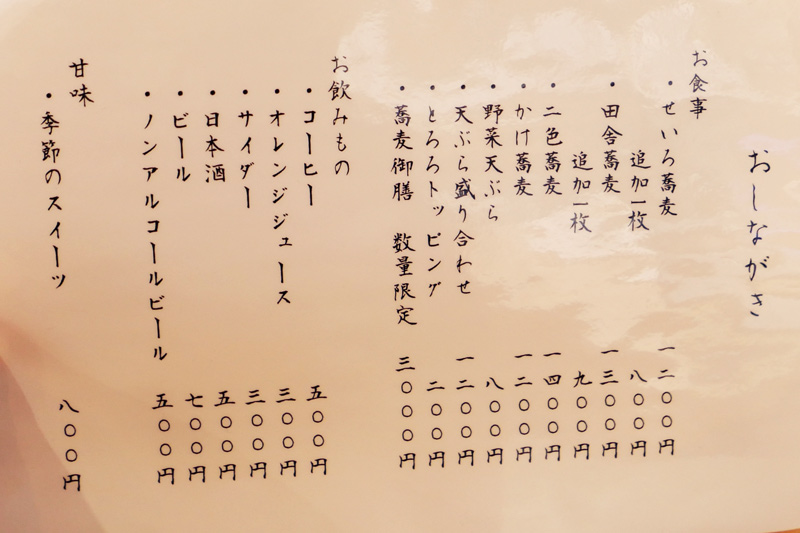 おしながき
お食事
・せいろ蕎麦 一二〇〇円
追加一枚 八〇〇円
・田舎蕎麦 一三〇〇円
追加一枚 九〇〇円
・二色蕎麦 一四〇〇円
・かけ蕎麦 一二〇〇円
・野菜天ぷら 八〇〇円
・天ぷら盛り合わせ 一二〇〇円
・とろろトッピング 二〇〇円
・蕎麦御膳 数量限定 三〇〇〇円
お飲みもの
・コーヒー 五〇〇円
・オレンジジュース 三〇〇円
・サイダー 三〇〇円
・日本酒 五〇〇円
・ビール 七〇〇円
・ノンアルコールビール 五〇〇円
甘味
・季節のスイーツ 八〇〇円